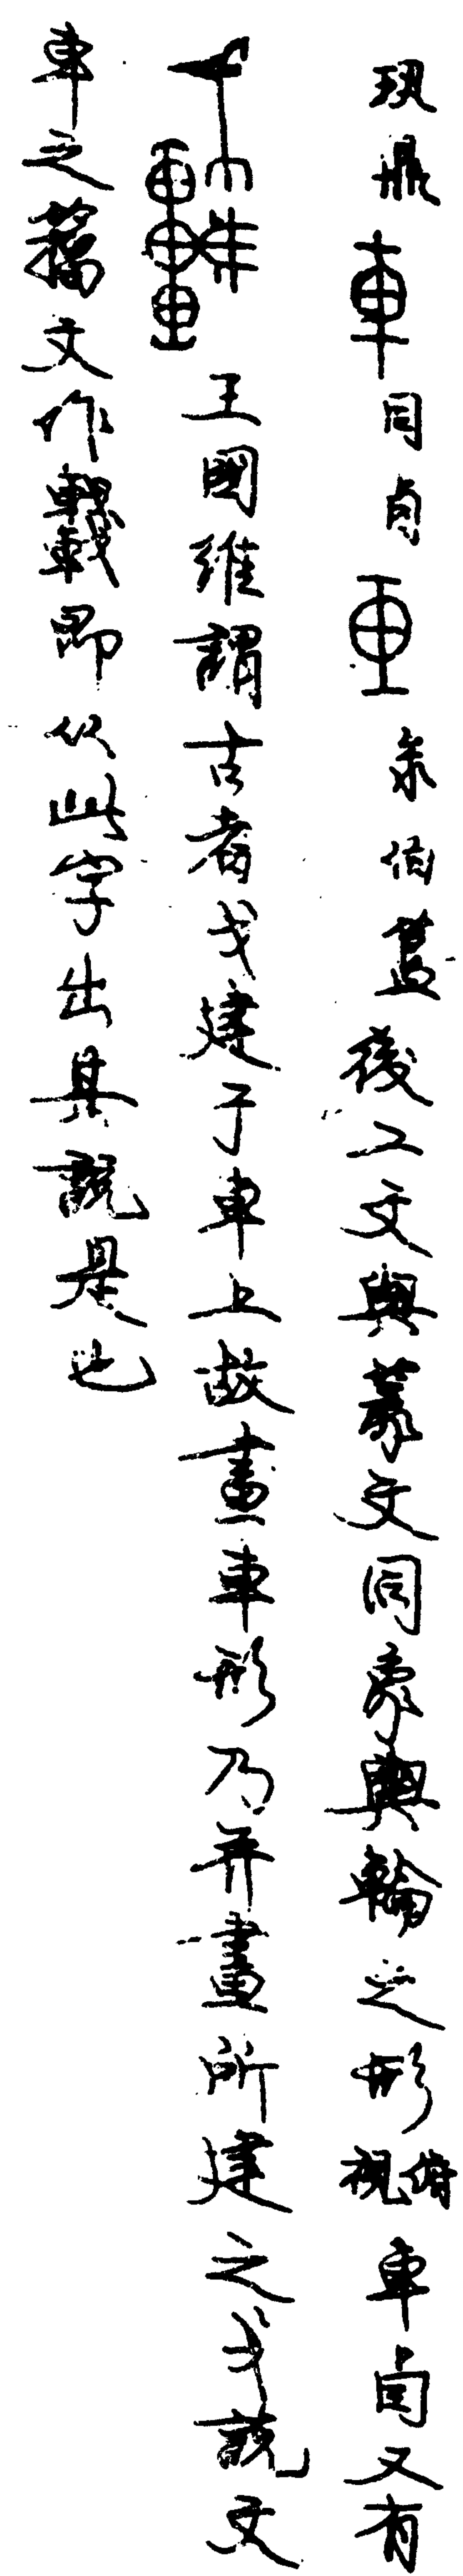 鼎車同卣車彔伯簋後二文與篆文同象輿輪之形俯視車卣又有
王國維謂古者戈建于車上故畫車形乃并畫所建之戈說文
車之籀文作䡛即从此字出其說是也